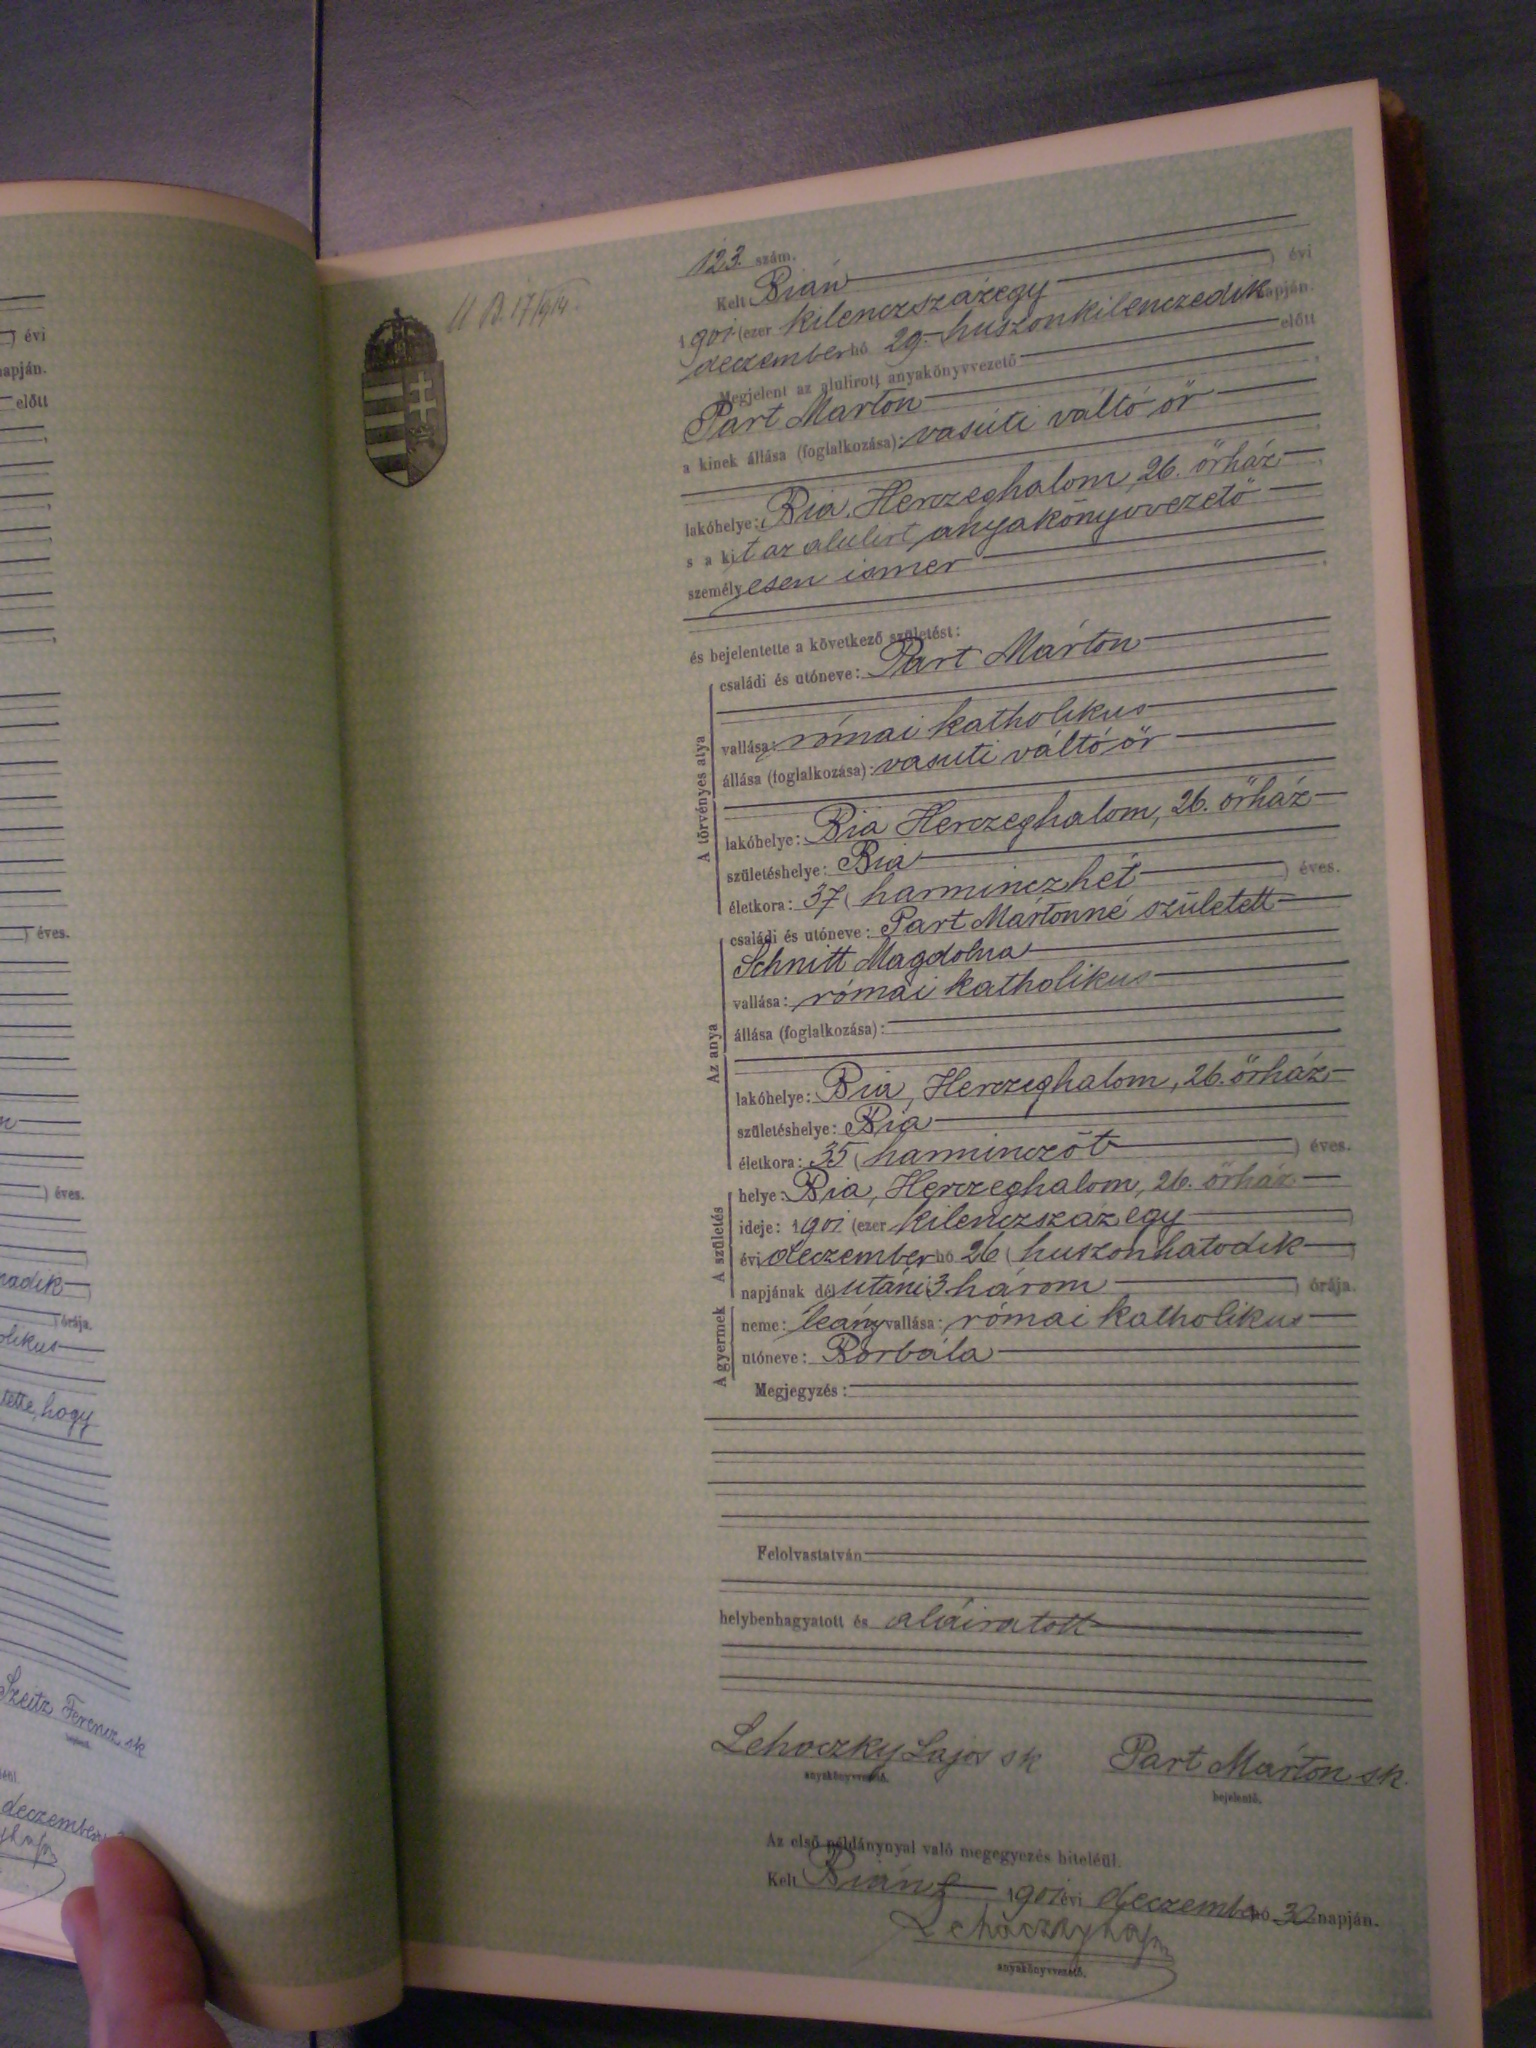 évi
napján.
előtt
éves.
) éves.
órája.
hogy
Szeitz Ferencz sk
deczember
123. szám.
Kelt Bián ) évi
1901 (ezer kilenczszázegy
deczember hó 29. huszonkilenczedik napján.
Megjelent az alulírott anyakönyvvezető előtt
Part Márton
a kinek állása (foglalkozása): vasúti váltó őr
lakóhelye: Bia, Herczeghalom, 26. őrház
s a kit az alulirt anyakönyvvezető
személyesen ismer
és bejelentette a következő születést:
A törvényes atya
családi és utóneve: Part Márton
vallása: római katholikus
állása (foglalkozása): vasuti váltó őr
lakóhelye: Bia Herczeghalom, 26. őrház
születéshelye: Bia
életkora: 37 ( harminczhét ) éves.
Az anya
családi és utóneve: Part Mártonné született
Schnitt Magdolna
vallása: római katholikus
állása (foglalkozása):
lakóhelye: Bia, Herczeghalom, 26. őrház
születéshelye: Bia
életkora: 35 ( harminczöt ) éves.
A születés
helye: Bia, Herczeghalom, 26. őrház
ideje: 1901 (ezer kilenczszáz egy )
évi deczember hó 26 ( huszonhatodik )
napjának délutáni 3 három ) órája.
A gyermek
neme: leány vallása: római katholikus
utóneve: Borbála
Megjegyzés:
Felolvastatván
helybenhagyatott és aláiratott
Lehoczky Lajos sk Part Márton sk.
anyakönyvvezető. bejelentő.
Az első példánynyal való megegyezés hiteléül.
Kelt Bián 1901 évi deczember hó 30 napján.
Lehoczky Lajos
anyakönyvvezető.